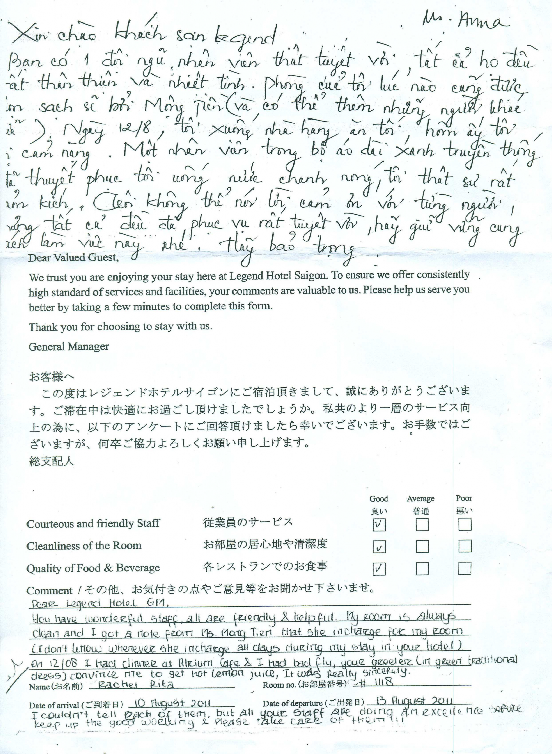 Ms. Anna
Xin chào khách sạn Legend
Bạn có 1 đội ngũ nhân viên thật tuyệt vời, tất cả họ đều
rất thân thiện và nhiệt tình. Phòng của tôi lúc nào cũng được
sạch sẽ bởi Mộng Tiền (và có thể thêm những người khác
). Ngày 12/8, tôi xuống nhà hàng ăn tối, hôm ấy tôi
cảm nặng. Một nhân viên trong bộ áo dài xanh truyền thống
thuyết phục tôi uống nước chanh nóng, tôi thật sự rất
kích. Tôi không thể nói lời cảm ơn với từng người,
tất cả đều đã phục vụ rất tuyệt vời, hãy giữ vững cung
làm việc này nhé. Hãy bảo trọng
Dear Valued Guest,
We trust you are enjoying your stay here at Legend Hotel Saigon. To ensure we offer consistently
high standard of services and facilities, your comments are valuable to us. Please help us serve you
better by taking a few minutes to complete this form.
Thank you for choosing to stay with us.
General Manager
お客様へ
この度はレジェンドホテルサイゴンにご宿泊頂きまして、誠にありがとうございま
す。ご滞在中は快適にお過ごし頂けましたでしょうか。私共のより一層のサービス向
上の為に、以下のアンケートにご回答頂けましたら幸いでございます。お手数ではご
ざいますが、何卒ご協力よろしくお願い申し上げます。
総支配人
Good Average Poor
良い 普通 悪い
Courteous and friendly Staff 従業員のサービス
Cleanliness of the Room お部屋の居心地や清潔度
Quality of Food & Beverage 各レストランでのお食事
Comment / その他、お気付きの点やご意見等をお聞かせ下さいませ。
Dear Legend Hotel GM,
You have wonderful staff, all are friendly & helpful. My room is always
clean and I got a note from Ms. Mong Tien that she incharge for my room
(I don't know wherever she incharge all days during my stay in your hotel)
on 12/08 I had dinner at Atrium Cafe & I had bad flu, your greeter (in green traditional
dress) convince me to get hot lemon juice, It was really sincerily.
Name (お名前) Rachel Rita Room no. (お部屋番号) # 1118
Date of arrival (ご到着日) 10 August 2011 Date of departure (ご出発日) 13 August 2011
I couldn't tell each of them, but all your staff are doing an excellence service
keep up the good working & please take care of them!!!